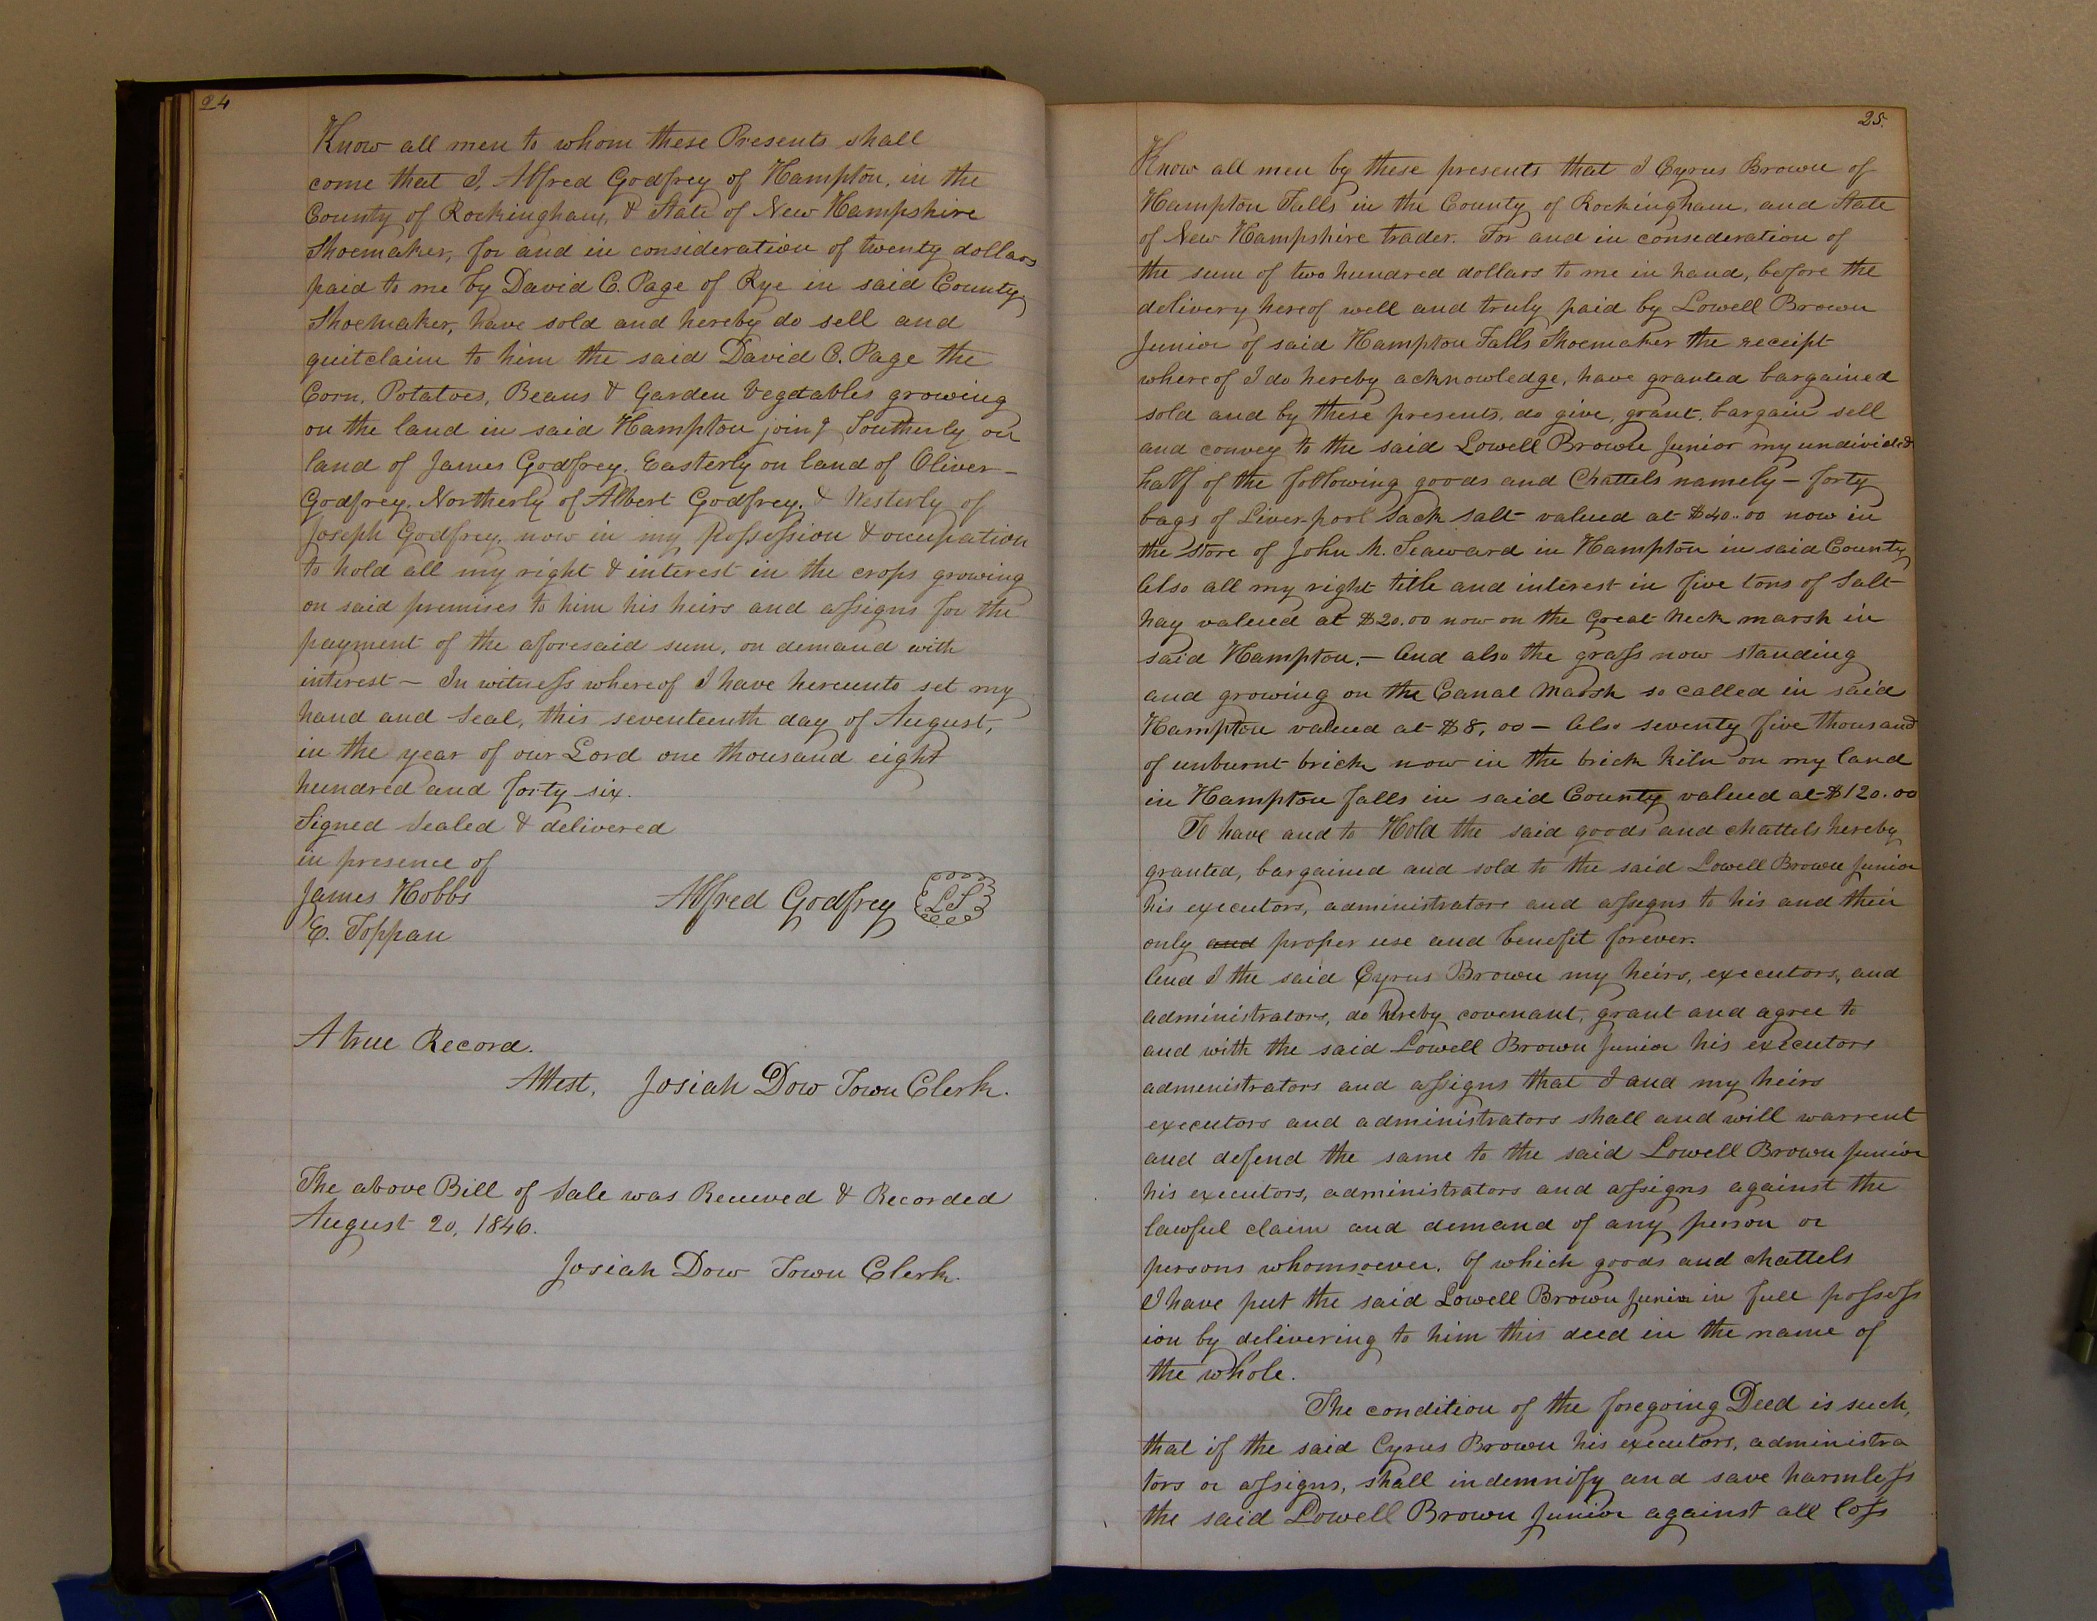 24
Know all men to whom these Presents shall
come that I, Alfred Godfrey of Hampton, in the
County of Rockingham, & State of New Hampshire
Shoemaker, for and in consideration of twenty dollars
paid to me by David C. Page of Rye in said County
Shoemaker, have sold and hereby do sell and
quitclaim to him the said David C. Page the
Corn, Potatoes, Beans & Garden Vegetables growing
on the land in said Hampton join'g Southerly on
land of James Godfrey, Easterly on land of Oliver
Godfrey, Northerly of Albert Godfrey, & Westerly of
Joseph Godfrey, now in my Possession & occupation
to hold all my right & interest in the crops growing
on said premises to him his heirs and assigns for the
payment of the aforesaid sum, on demand with
interest — In witness whereof I have hereunto set my
hand and Seal, this seventeenth day of August,
in the year of our Lord one thousand eight
hundred and forty six.
Signed Sealed & delivered
in presence of
James Hobbs Alfred Godfrey LS
E. Toppan
A true Record.
Attest, Josiah Dow Town Clerk.
The above Bill of Sale was Received & Recorded
August 20, 1846.
Josiah Dow Town Clerk.
25.
Know all men by these presents that I Cyrus Brown of
Hampton Falls in the County of Rockingham, and State
of New Hampshire trader. For and in consederation of
the sum of two hundred dollars to me in hand, before the
delivery hereof well and truly paid by Lowell Brown
Junior of said Hampton Falls Shoemaker the receipt
whereof I do hereby acknowledge, have granted bargained
sold and by these presents, do give, grant, bargain sell
and convey to the said Lowell Brown Junior my undivided
half of the following goods and Chattels namely — forty
bags of Liverpool Sack Salt valued at $40.00 now in
the Store of John M. Seaward in Hampton in said County
Also all my right title and interest in five tons of Salt
hay valued at $20.00 now on the Great Neck marsh in
said Hampton. — And also the grass now standing
and growing on the Canal Marsh so called in said
Hampton valued at $8,00 — Also seventy five thousand
of unburnt brick now in the brick kiln on my land
in Hampton falls in said County valued at $120.00
To have and to Hold the said goods and chattels hereby
granted, bargained and sold to the said Lowell Brown Junior
his executors, administrators and assigns to his and their
only and proper use and benefit forever.
And I the said Cyrus Brown my heirs, executors, and
administrators, do hereby covenant, grant and agree to
and with the said Lowell Brown Junior his executors
administrators and assigns that I and my heirs
executors and administrators shall and will warrent
and defend the same to the said Lowell Brown Junior
his executors, administrators and assigns against the
lawful claim and demand of any person or
persons whomsoever. Of which goods and chattels
I have put the said Lowell Brown Junior in full possess
ion by delivering to him this deed in the name of
the whole.
The condition of the foregoing Deed is such,
that if the said Cyrus Brown his executors, administra
tors or assigns, shall indemnify and save harmless
the said Lowell Brown Junior against all loss